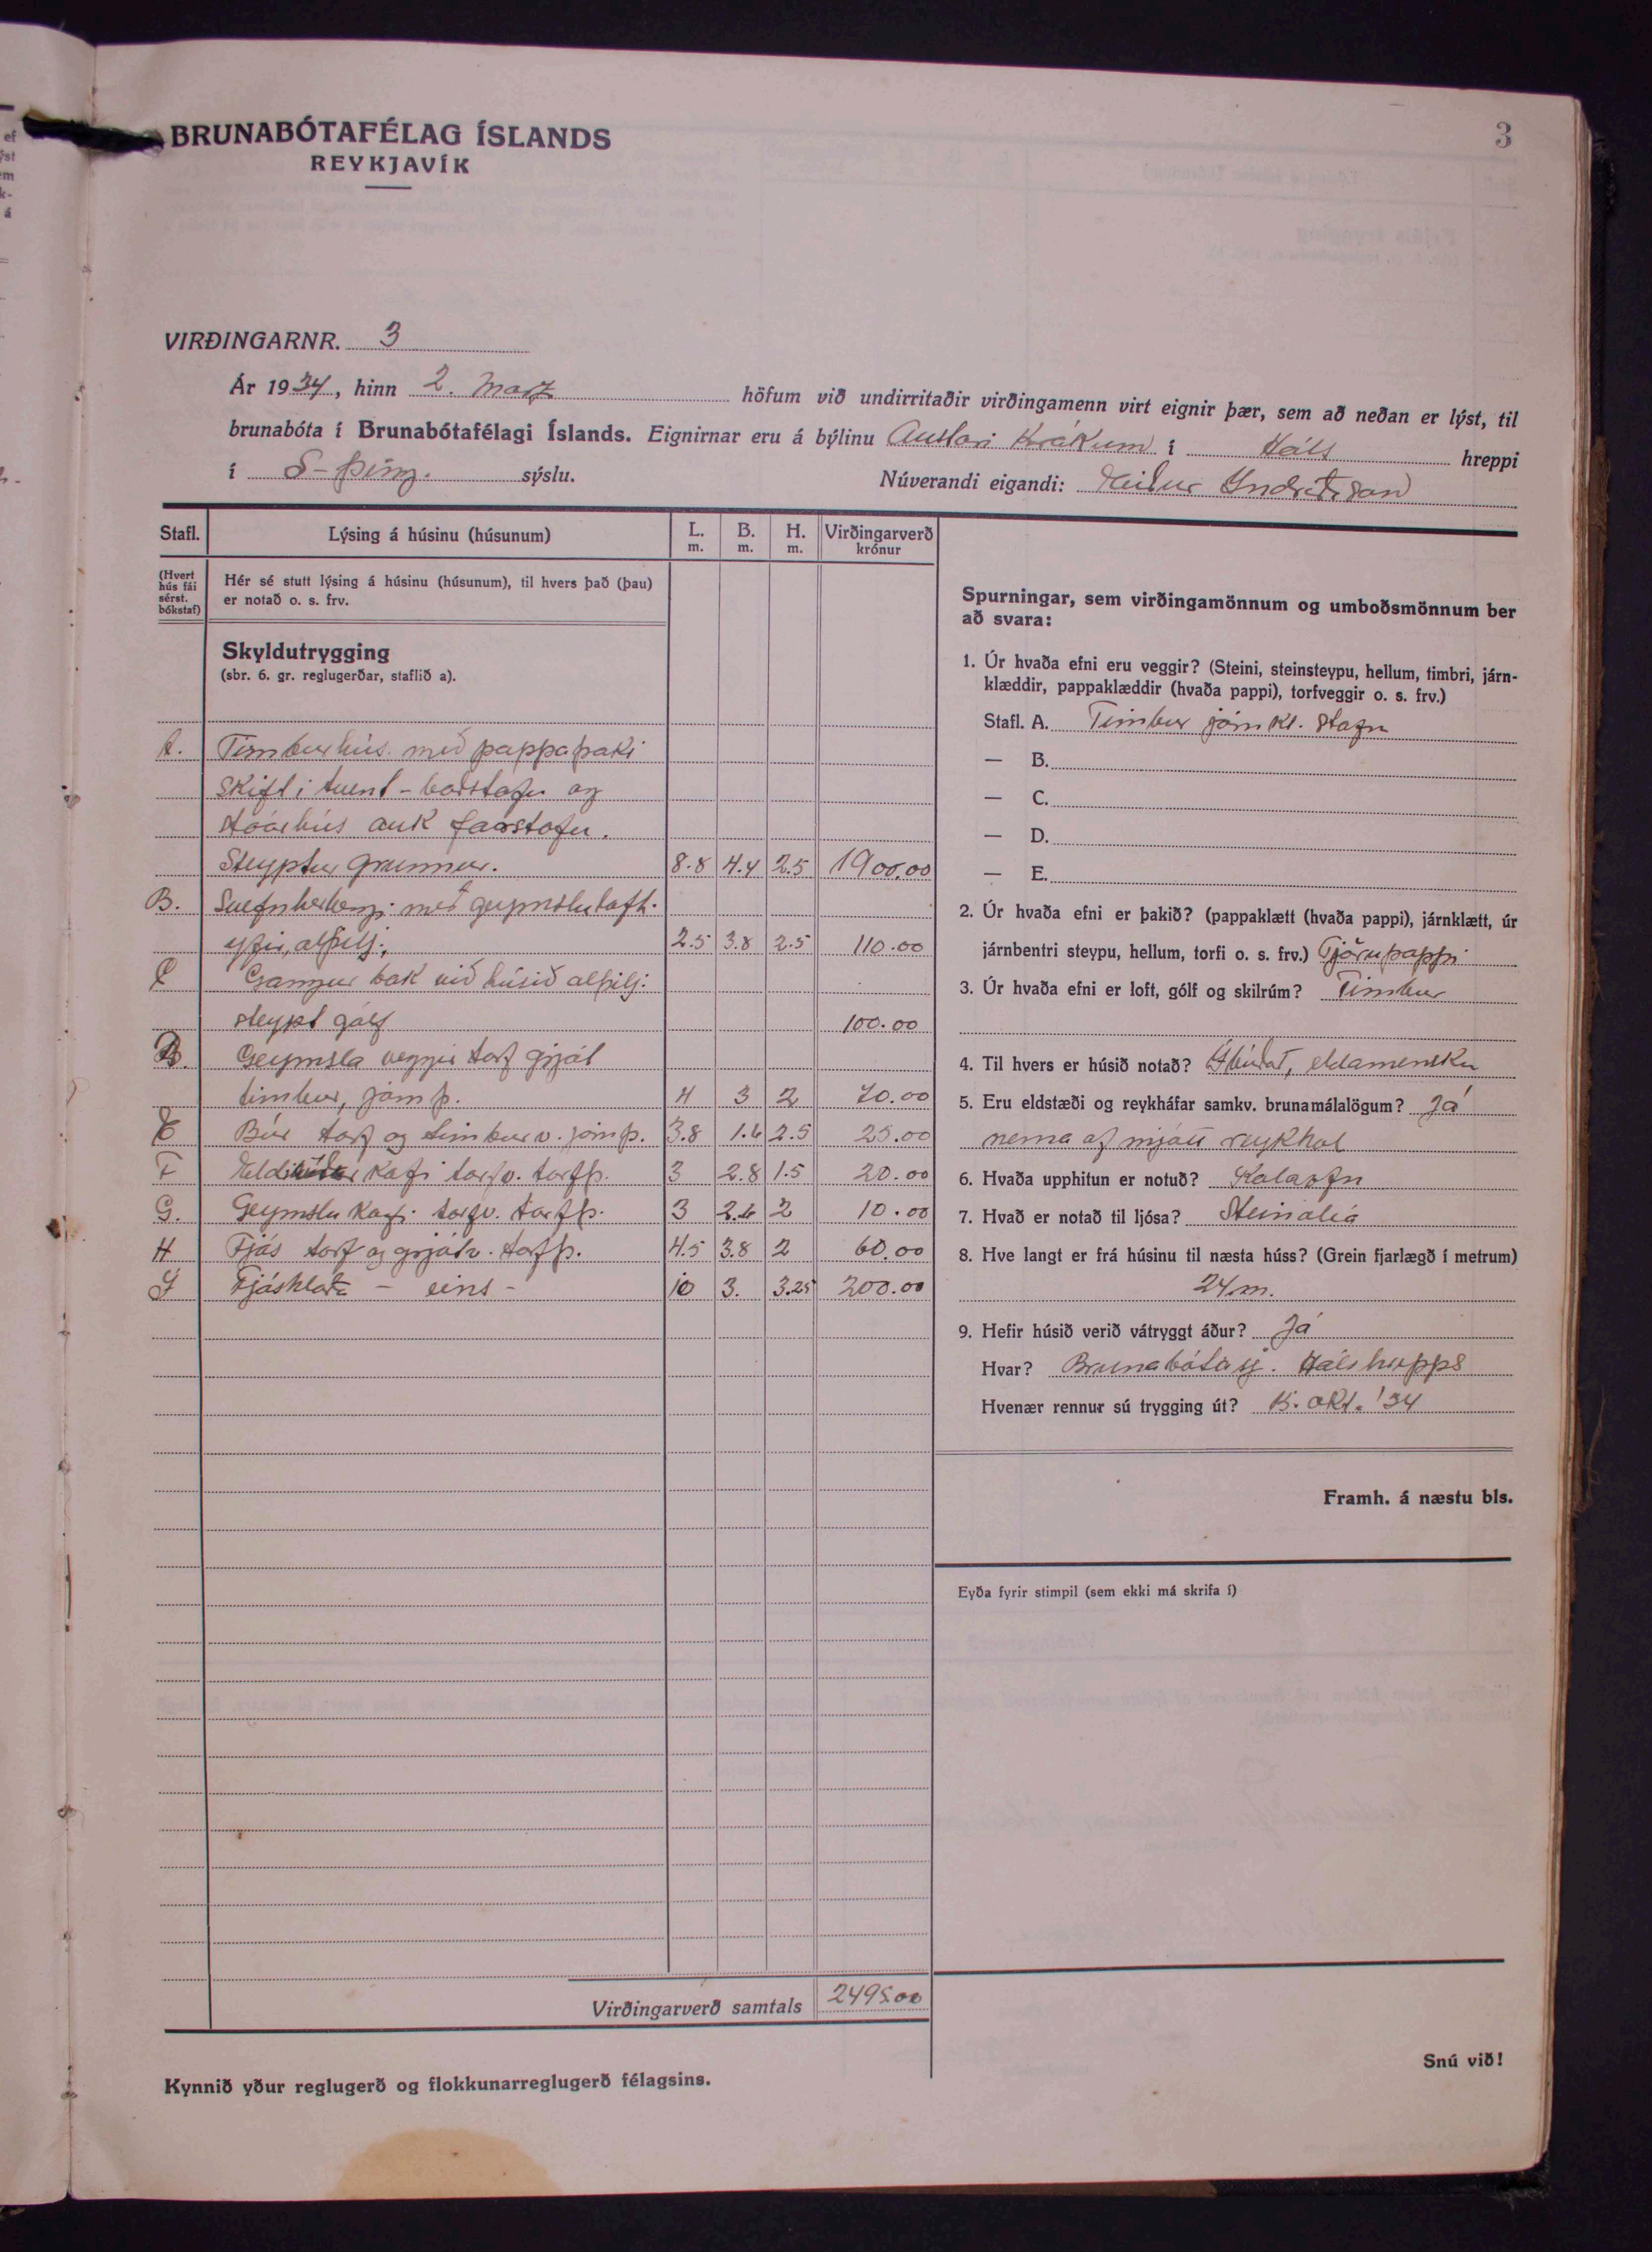 BRUNABÓTAFÉLAG ÍSLANDS
REYKJAVÍK
3
VIRÐINGARNR. 3
Ár 1934, hinn 2. Marz höfum við undirritaðir virðingamenn virt eignir þær, sem að neðan er lýst, til
brunabóta í Brunabótafélagi Íslands. Eignirnar eru á býlinu Austari Krókum í Háls hreppi
í S-Þing. sýslu. Núverandi eigandi: Indriðason
Stafl. Lýsing á húsinu (húsunum) L. m. B. m. H. m. Virðingarverð krónur
(Hvert hús fái sérst. bókstaf)
Hér sé stutt lýsing á húsinu (húsunum), til hvers það (þau)
er notað o. s. frv.
Skyldutrygging
(sbr. 6. gr. reglugerðar, staflið a).
A. Timburhús með pappaþaki
skift i tvent - baðstofu og
stóarhús auk forstofu.
Steyptur grunnur. 8.8 4.4 2.5 1900.00
B. Svefnherbergi með geymslulofti
yfir, alþilj. 2.5 3.8 2.5 110.00
C Gangur bak við húsið alþilj.
steypt gólf 100.00
D. Geymsla veggir torf grjót
timbur, járnþ. 4 3 2 70.00
E Búr torf og timburv. járnþ. 3.8 1.6 2.5 25.00
F kofi torfv. torfþ. 3 2.8 1.5 20.00
G. Geymslukofi torfv. torfþ. 3 2.6 2 10.00
H Fjós torf og grjótv. torfþ. 4.5 3.8 2 60.00
I Fjóshlaða - eins - 10 3. 3.25 200.00
Virðingarverð samtals 2495.00
Kynnið yður reglugerð og flokkunarreglugerð félagsins.
Spurningar, sem virðingamönnum og umboðsmönnum ber
að svara:
1. Úr hvaða efni eru veggir? (Steini, steinsteypu, hellum, timbri, járn-
klæddir, pappaklæddir (hvaða pappi), torfveggir o. s. frv.)
Stafl. A. Timbur járnkl. stafn
— B.
— C.
— D.
— E.
2. Úr hvaða efni er þakið? (pappaklætt (hvaða pappi), járnklætt, úr
járnbentri steypu, hellum, torfi o. s. frv.) Tjörupappi
3. Úr hvaða efni er loft, gólf og skilrúm? Timbur
4. Til hvers er húsið notað? Íbúðar, eldamensku
5. Eru eldstæði og reykháfar samkv. brunamálalögum? Já
nema of mjótt reykhol
6. Hvaða upphitun er notuð? Kolaofn
7. Hvað er notað til ljósa? Steinolía
8. Hve langt er frá húsinu til næsta húss? (Grein fjarlægð í metrum)
24 m.
9. Hefir húsið verið vátryggt áður? Já
Hvar? Brunabótasj. Hálshrepps
Hvenær rennur sú trygging út? 15. okt. '34
Framh. á næstu bls.
Eyða fyrir stimpil (sem ekki má skrifa í)
Snú við!